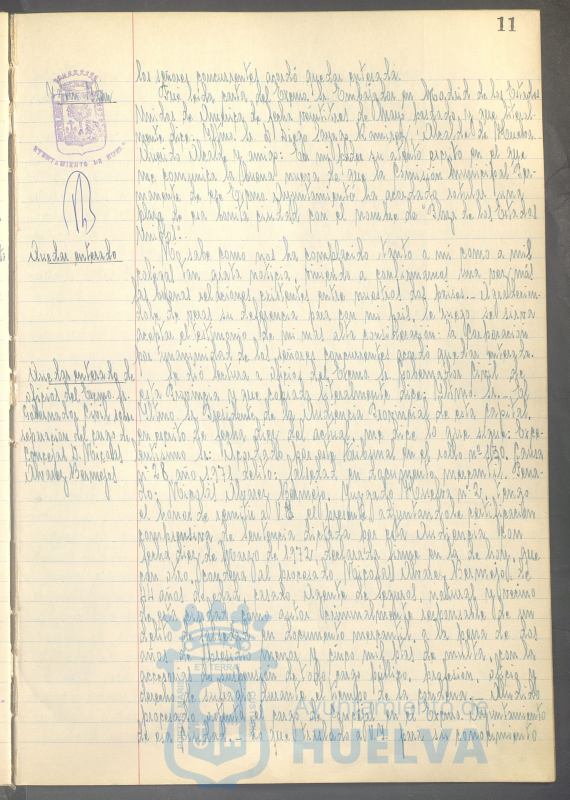 11
los señores concurrentes acordó quedar enterada.
Fue leída carta del Excmo. Sr. Embajador en Madrid de los Estados
Unidos de América de fecha
mente dice:
Querido Alcalde y amigo: su atento escrito en el que
me comunica la buena nueva de que la Comisión Municipal Per-
manente de ese Excmo. Ayuntamiento ha acordado rotular una
plaza de esa bonita ciudad con el nombre de Plaza de los Estados
Unidos.
Quedar enterado
No sabe como nos ha complacido tanto a mí como a mis
colegas tan grata noticia, viniendo a confirmarnos una vez más
las buenas relaciones existentes entre nuestros dos países.
dole de veras su deferencia para con mi país, le ruego se sirva
aceptar el testimonio de mi más alta consideración. La Corporación
por unanimidad de los señores concurrentes acordó quedar enterada.
Quedar enterado de
oficio del Excmo. Sr.
Gobernador Civil sobre
separación del cargo de
Concejal D. Nicolás
Alvarez Bermejo
Se dió lectura a oficio del Excmo. Sr. Gobernador Civil de
esta Provincia y que copiado literalmente dice: Iltmo. Sr.: El
Iltmo. Sr. Presidente de la Audiencia Provincial de esta Capital,
en escrito de fecha diez del actual, me dice lo que sigue: Exce-
lentísimo Sr.: Acordado por este Tribunal en el rollo nº 830, Causa
nº 38, año 1971, delito: falsedad en documento mercantil,
Nicolás Alvarez Bermejo, Juzgado Huelva nº 2, tengo
el honor de remitir a V.E. el presente adjuntándole certificación
comprensiva de sentencia dictada por esta Audiencia con
fecha diez de Marzo de 1972, declarada firme en la de hoy, que
con otro, condena al procesado Nicolás Alvarez Bermejo, de
44 años de edad, casado, Agente de Seguros, natural y vecino
de esta ciudad, como autor criminalmente responsable de un
delito de falsedad en documento mercantil, a la pena de dos
años de presidio menor y cinco mil ptas de multa, con la
accesoria de suspensión de todo cargo público, profesión, oficio y
derecho de sufragio durante el tiempo de la condena.
procesado el cargo de Concejal en el Excmo. Ayuntamiento
de esa ciudad.- Lo que traslado a V.S. para su conocimiento
Ayuntamiento de
HUELVA